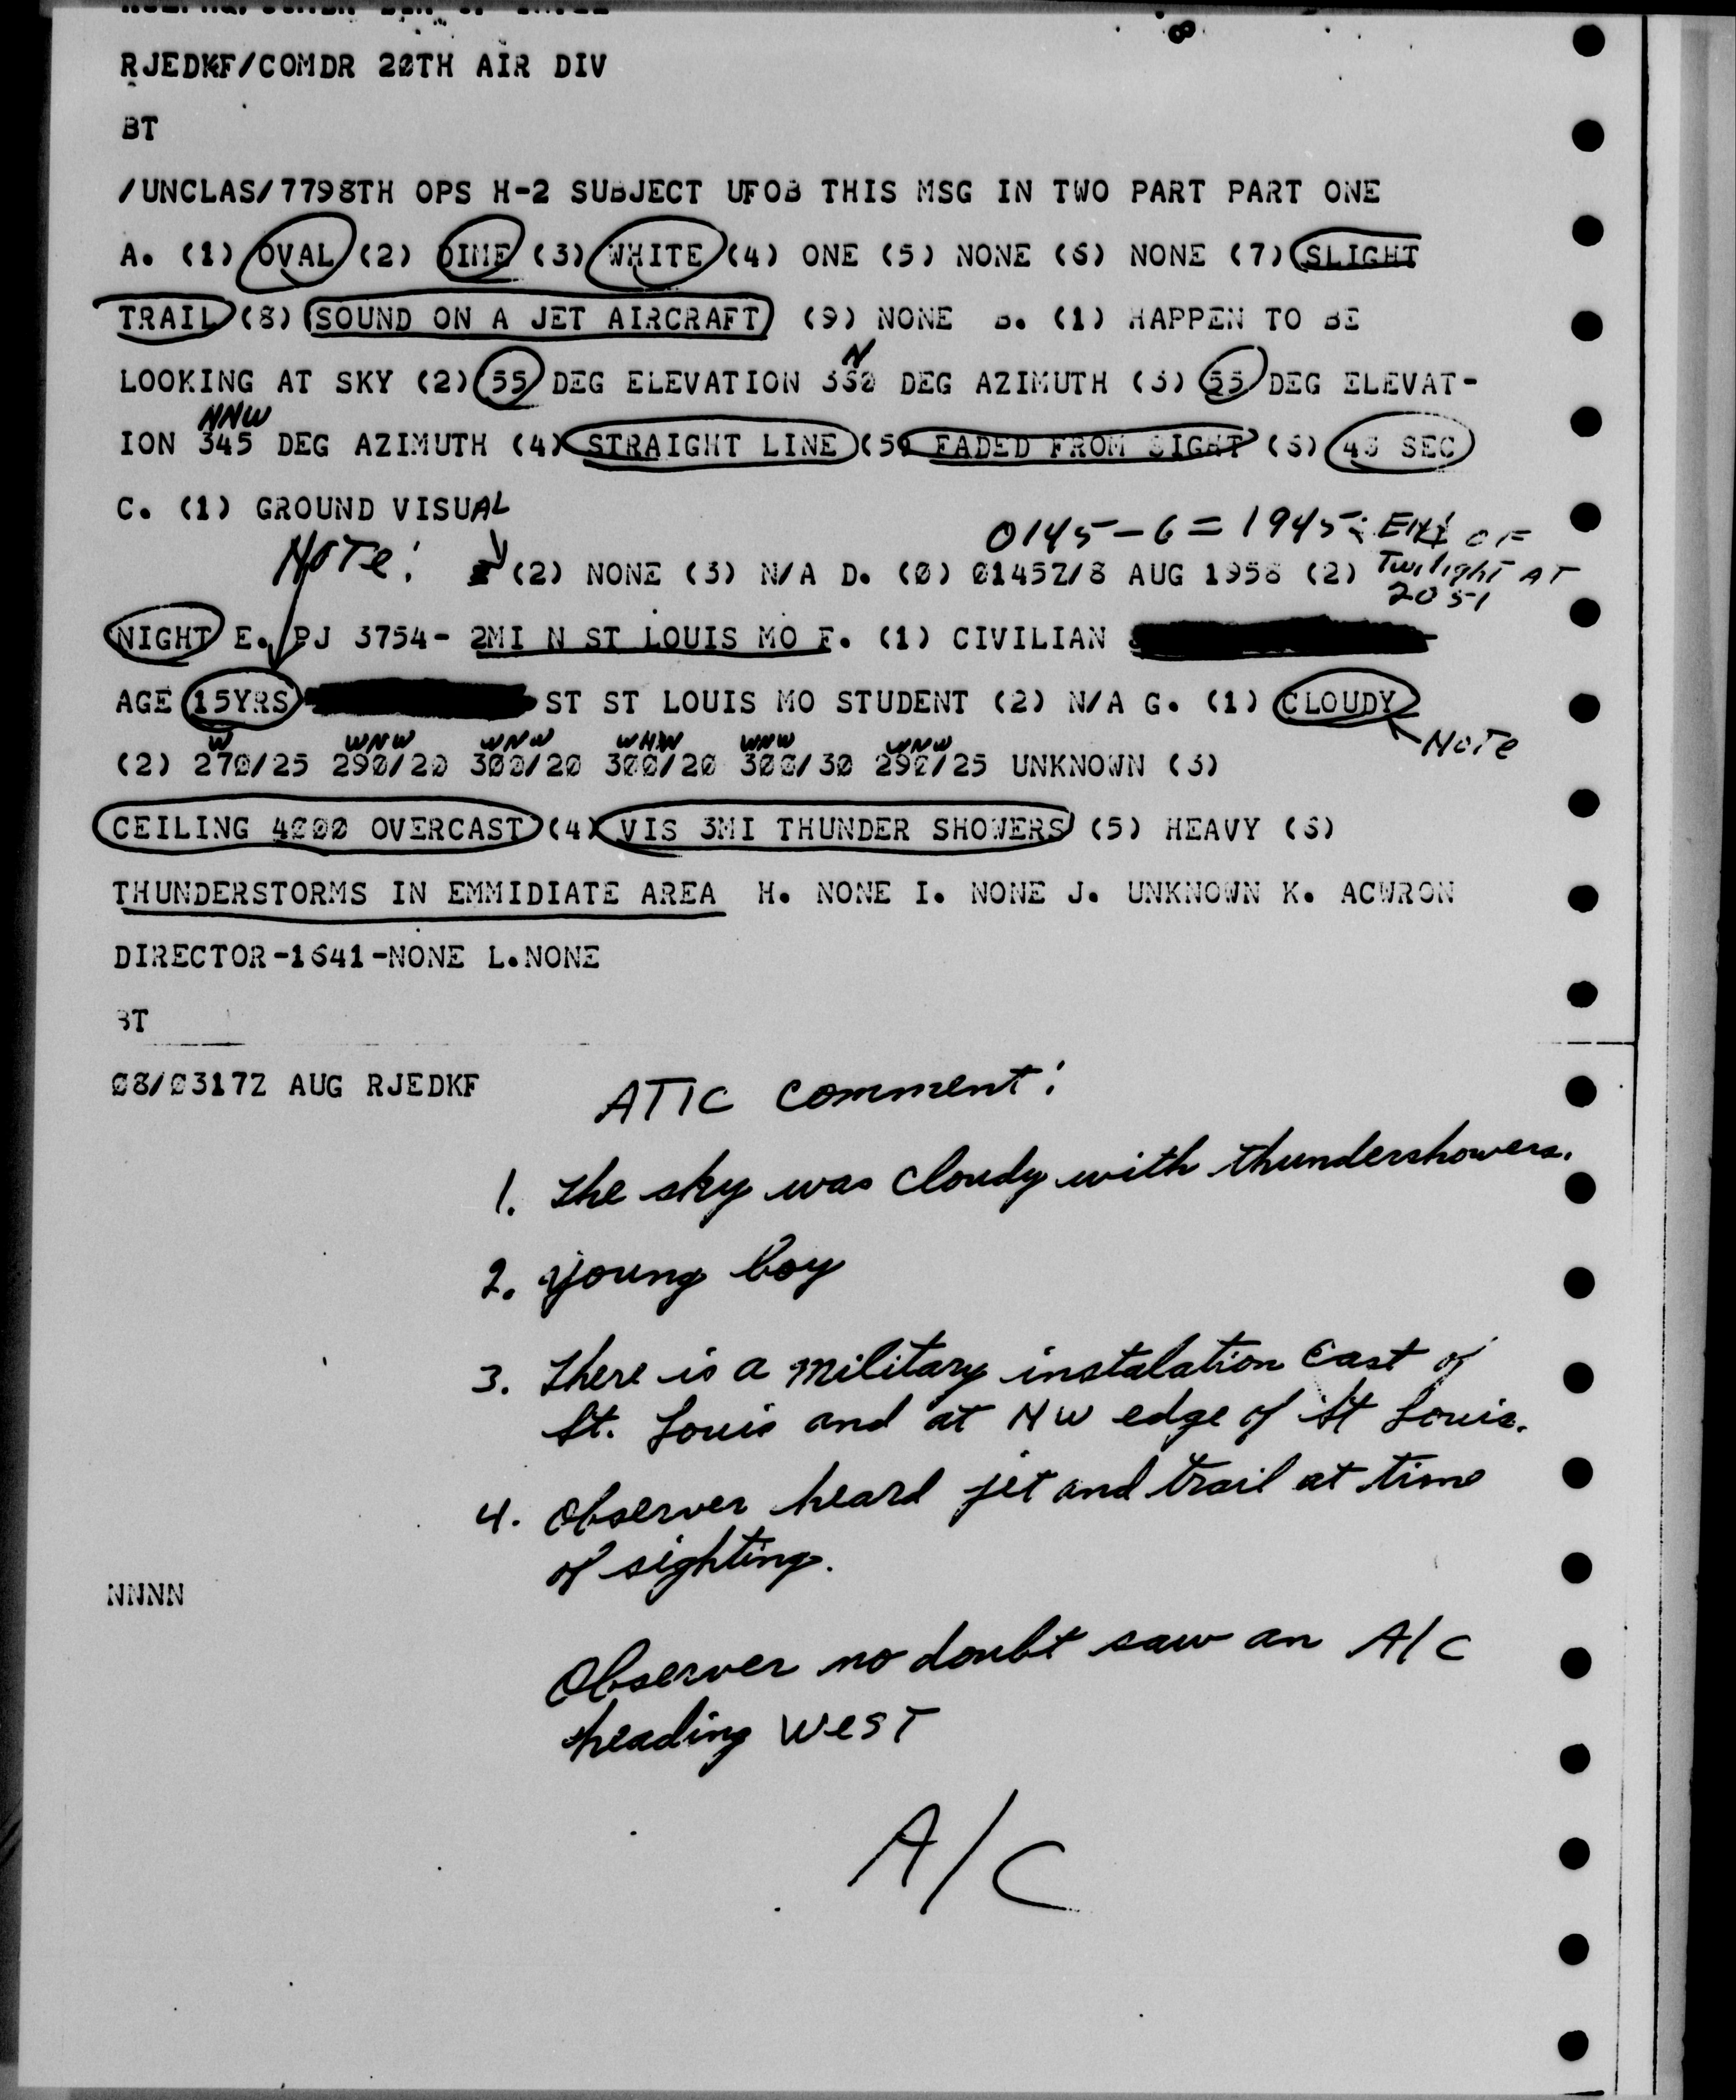 RJEDKF/COMDR 20TH AIR DIV
BT
/UNCLAS/7798TH OPS H-2 SUBJECT UFOB THIS MSG IN TWO PART PART ONE
A. (1) OVAL (2) DIME (3) WHITE (4) ONE (5) NONE (6) NONE (7) SLIGHT
TRAIL (8) SOUND ON A JET AIRCRAFT (9) NONE B. (1) HAPPEN TO BE
N
LOOKING AT SKY (2) 55 DEG ELEVATION DEG AZIMUTH (3) 55 DEG ELEVAT-
NNW
ION 345 DEG AZIMUTH (4) STRAIGHT LINE (5) FADED FROM SIGHT (6) 45 SEC
C. (1) GROUND VISUAL
0145-6=1945 End of
Note: (2) NONE (3) N/A D. (0) 0145Z/8 AUG 1956 (2) Twilight AT
2051
NIGHT E. PJ 3754- 2MI N ST LOUIS MO F. (1) CIVILIAN
AGE 15YRS ST ST LOUIS MO STUDENT (2) N/A G. (1) CLOUDY
W WNW WNW WNW WNW WNW Note
(2) 270/25 290/20 300/20 300/20 300/30 290/25 UNKNOWN (3)
CEILING 4000 OVERCAST (4) VIS 3MI THUNDER SHOWERS (5) HEAVY (6)
THUNDERSTORMS IN EMMIDIATE AREA H. NONE I. NONE J. UNKNOWN K. ACWRON
DIRECTOR-1641-NONE L.NONE
BT
08/0317Z AUG RJEDKF
ATIC comment:
1. The sky was cloudy with thundershowers.
2. young boy
3. There is a military instalation East of
St. Louis and at NW edge of St Louis.
4. Observer heard jet and trail at time
of sighting.
NNNN
Observer no doubt saw an A/C
heading WEST
A/C